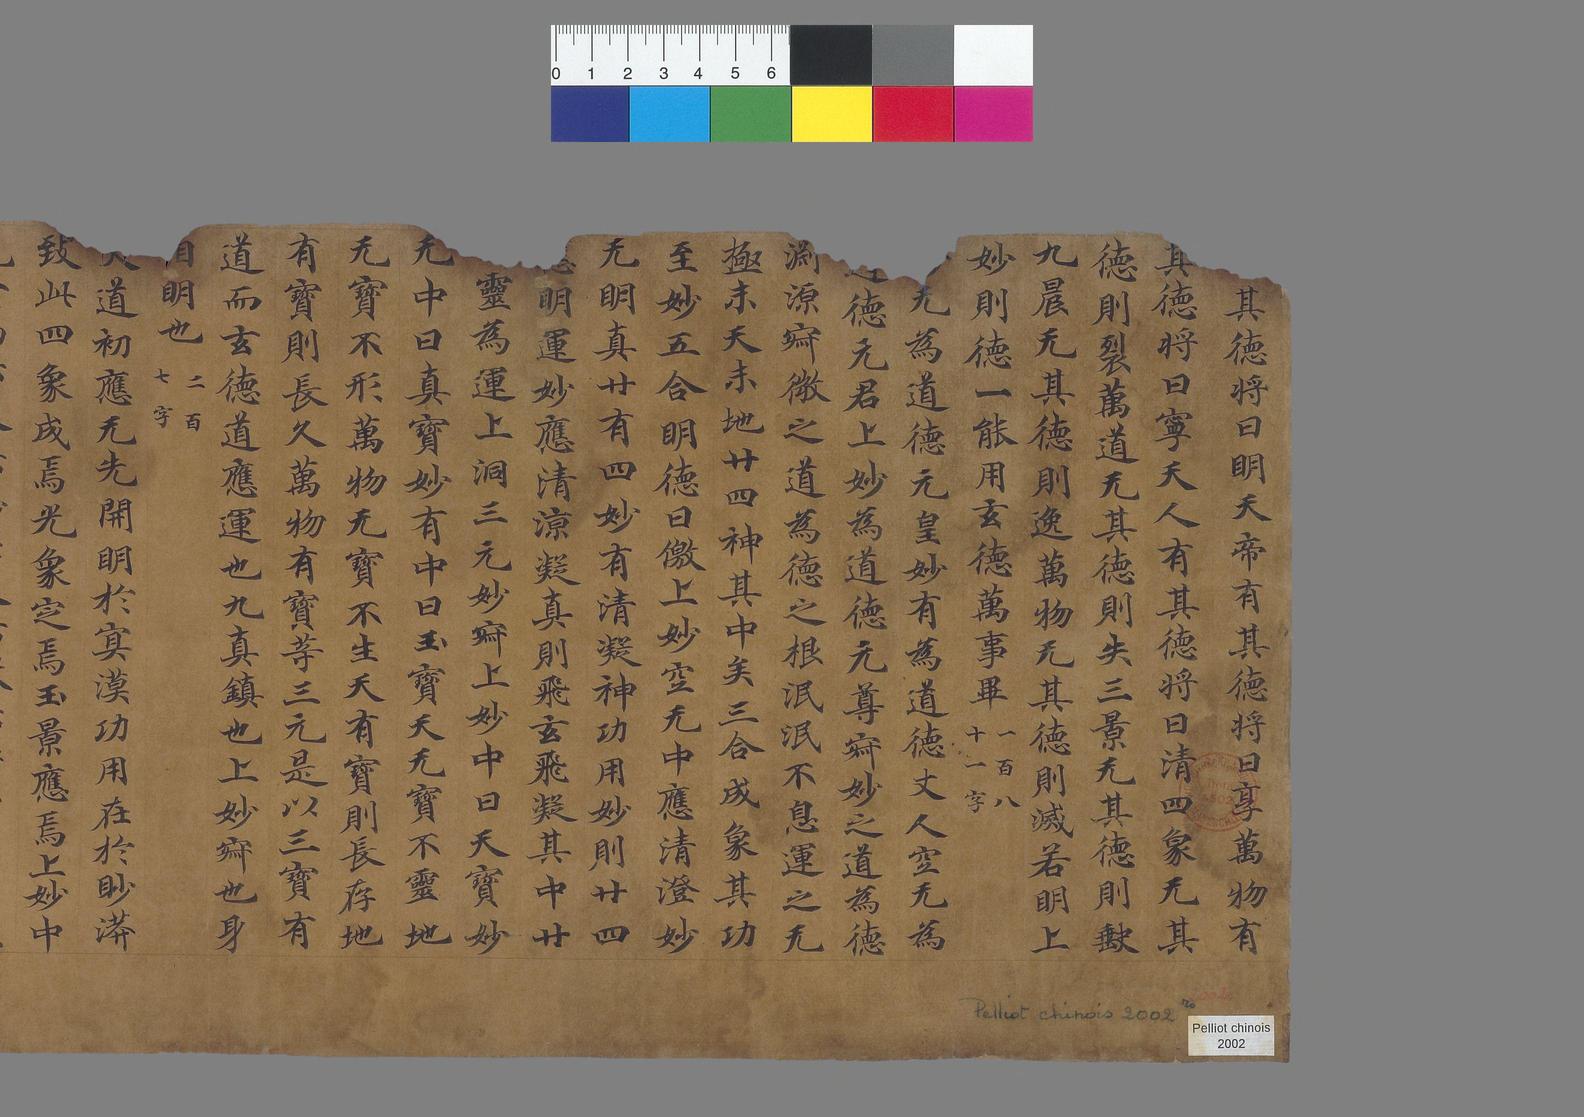 其德將曰明天帝有其德將曰享萬物有
其德將曰寧天人有其德將曰清四象无其
德則裂萬道无其德則失三景无其德則
九晨无其德則逸萬物无其德則滅若明上
妙則德一能用玄德萬事畢
一百八
十一字
无為道德元皇妙有為道德丈人空无為
德元君上妙為道德元尊妙之道為德
源微之道為德之根泯泯不息運之无
極未天未地廿四神其中矣三合成象其功
至妙五合明德曰儌上妙空无中應清澄妙
无明真廿有四妙有清凝神功用妙則廿四
明運妙應清涼凝真則飛玄飛凝其中廿
靈為運上洞三元妙上妙中曰天寶妙
无中曰真寶妙有中曰玉寶天无寶不靈地
无寶不形萬物无寶不生天有寶則長存地
有寶則長久萬物有寶等三元是以三寶有
道而玄德道應運也九真鎮也上妙也身
明也
二百
七字
道初應无先開明於寞漠功用在於眇漭
致此四象成焉光象定焉玉景應焉上妙中
0 1 2 3 4 5 6
Pelliot chinois 2002
Pelliot chinois
2002